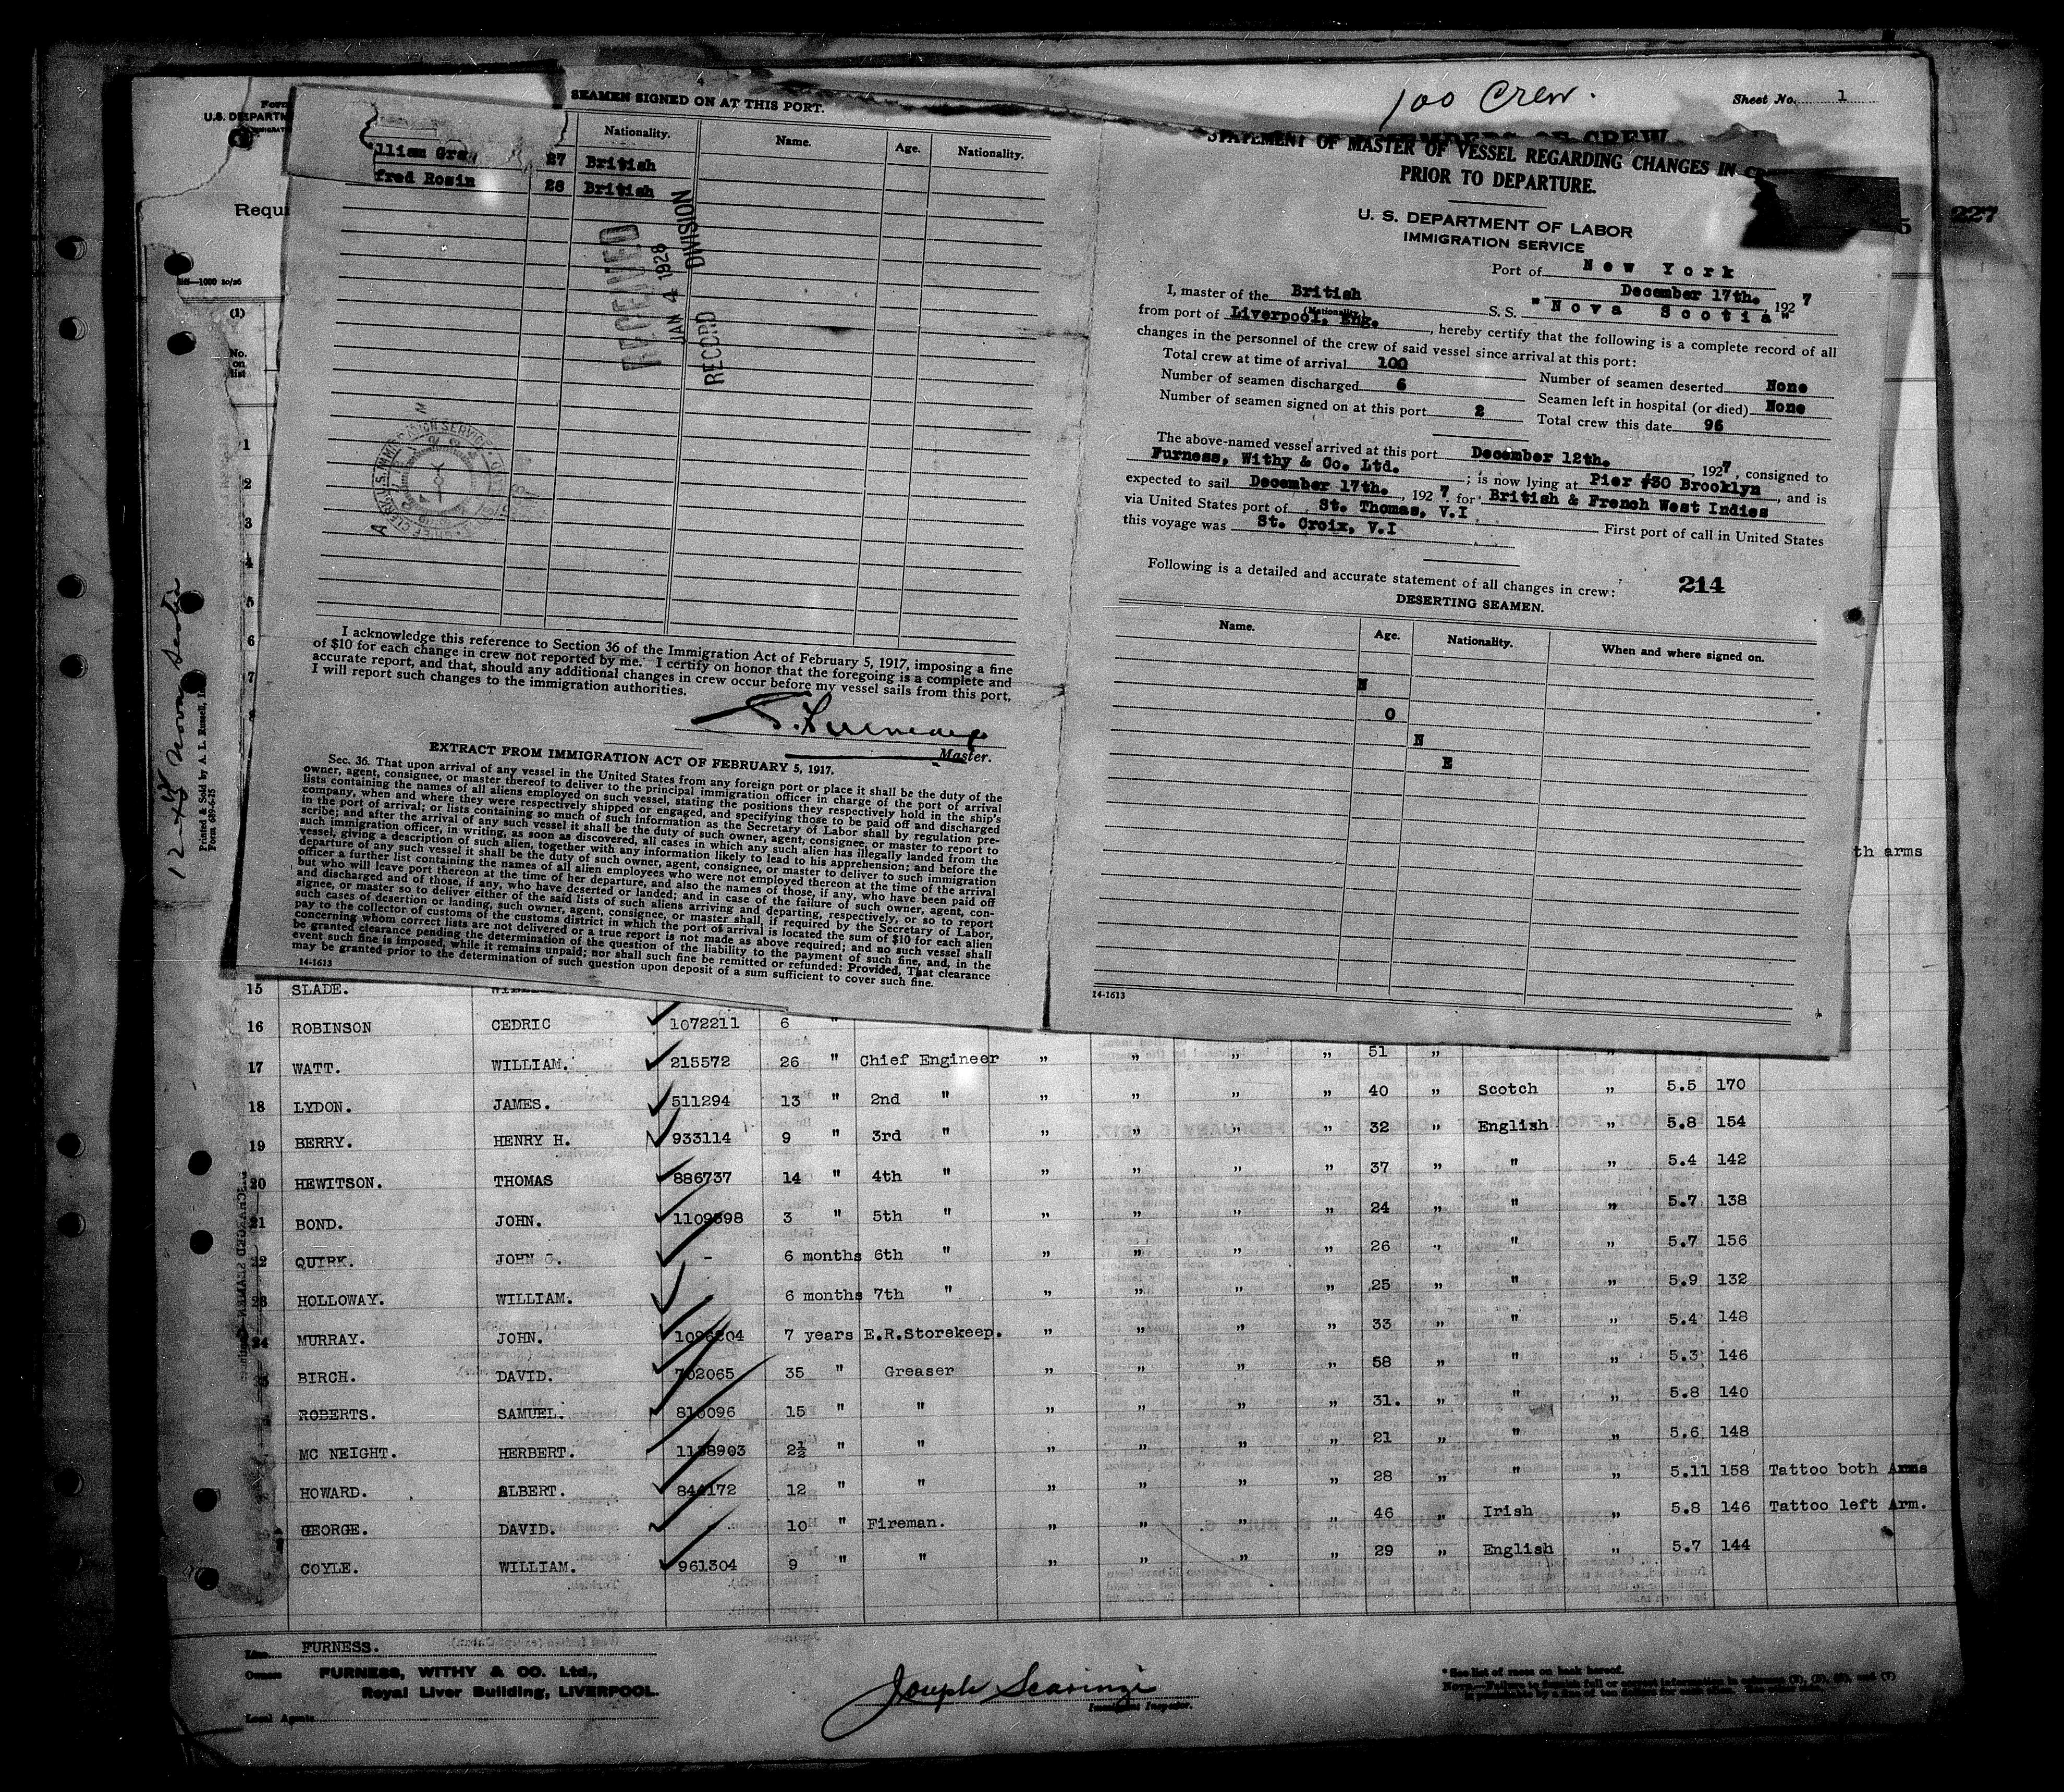 100 Crew.
Sheet No. 1
U.S. DEPARTM
Requi
227
4
SEAMEN SIGNED ON AT THIS PORT.
Nationality. Name. Age. Nationality.
lliam Gra 27 British
fred Rosin 28 British
RECEIVED
JAN 4 1928
RECORD DIVISION
I acknowledge this reference to Section 36 of the Immigration Act of February 5, 1917, imposing a fine
of $10 for each change in crew not reported by me. I certify on honor that the foregoing is a complete and
accurate report, and that, should any additional changes in crew occur before my vessel sails from this port,
I will report such changes to the immigration authorities.
Master.
EXTRACT FROM IMMIGRATION ACT OF FEBRUARY 5, 1917.
Sec. 36. That upon arrival of any vessel in the United States from any foreign port or place it shall be the duty of the
owner, agent, consignee, or master thereof to deliver to the principal immigration officer in charge of the port of arrival
lists containing the names of all aliens employed on such vessel, stating the positions they respectively hold in the ship's
company, when and where they were respectively shipped or engaged, and specifying those to be paid off and discharged
in the port of arrival; or lists containing so much of such information as the Secretary of Labor shall by regulation pre-
scribe; and after the arrival of any such vessel it shall be the duty of such owner, agent, consignee, or master to report to
such immigration officer, in writing, as soon as discovered, all cases in which any such alien has illegally landed from the
vessel, giving a description of such alien, together with any information likely to lead to his apprehension; and before the
departure of any such vessel it shall be the duty of such owner, agent, consignee, or master to deliver to such immigration
officer a further list containing the names of all alien employees who were not employed thereon at the time of the arrival
but who will leave port thereon at the time of her departure, and also the names of those, if any, who have been paid off
and discharged and of those, if any, who have deserted or landed; and in case of the failure of such owner, agent, con-
signee, or master so to deliver either of the said lists of such aliens arriving and departing, respectively, or so to report
such cases of desertion or landing, such owner, agent, consignee, or master shall, if required by the Secretary of Labor,
pay to the collector of customs of the customs district in which the port of arrival is located the sum of $10 for each alien
concerning whom correct lists are not delivered or a true report is not made as above required; and no such vessel shall
be granted clearance pending the determination of the question of the liability to the payment of such fine, and, in the
event such fine is imposed, while it remains unpaid; nor shall such fine be remitted or refunded: Provided, That clearance
may be granted prior to the determination of such question upon deposit of a sum sufficient to cover such fine.
14-1613
STATEMENT OF MASTER OF VESSEL REGARDING CHANGES IN
PRIOR TO DEPARTURE.
U. S. DEPARTMENT OF LABOR
IMMIGRATION SERVICE
Port of New York
December 17th. 1927
I, master of the British S. S. "Nova Scotia"
(Nationality)
from port of Liverpool, Eng. , hereby certify that the following is a complete record of all
changes in the personnel of the crew of said vessel since arrival at this port:
Total crew at time of arrival 100
Number of seamen discharged 6 Number of seamen deserted None
Number of seamen signed on at this port 2 Seamen left in hospital (or died) None
Total crew this date 96
The above-named vessel arrived at this port December 12th. , 1927, consigned to
Furness, Withy & Co. Ltd. ; is now lying at Pier #30 Brooklyn , and is
expected to sail December 17th. , 1927 for British & French West Indies
via United States port of St. Thomas, V.I. First port of call in United States
this voyage was St. Croix, V.I
Following is a detailed and accurate statement of all changes in crew: 214
DESERTING SEAMEN.
Name. Age. Nationality. When and where signed on.
N
O
N
E
14-1613
(1)
No. on list
1
2
3
4
5
6
7
8
12-12 Nova Scotia
Printed & Sold by A. L. Russell, I
Form 689-6-25
th arms
15 SLADE.
16 ROBINSON CEDRIC 1072211 6 "
17 WATT. WILLIAM. 215572 26 " Chief Engineer " " " " 51 "
18 LYDON. JAMES. 511294 13 " 2nd " " " " " 40 " Scotch " 5.5 170
19 BERRY. HENRY H. 933114 9 " 3rd " " " " " 32 " English " 5.8 154
20 HEWITSON. THOMAS 886737 14 " 4th " " " " " 37 " " " 5.4 142
21 BOND. JOHN. 1109398 3 " 5th " " " " " 24 " " " 5.7 138
22 QUIRK. JOHN G. - 6 months 6th " " " " " 26 " " " 5.7 156
23 HOLLOWAY. WILLIAM. 6 months 7th " " " " " 25 " " " 5.9 132
24 MURRAY. JOHN. 1096204 7 years E.R.Storekeep. " " " " 33 " " " 5.4 148
25 BIRCH. DAVID. 702065 35 " Greaser " " " " 58 " " " 5.3 146
ROBERTS. SAMUEL. 810096 15 " " " " " " 31. " " " 5.8 140
MC NEIGHT. HERBERT. 1138903 2½ " " " " " " 21 " " " 5.6 148
HOWARD. ALBERT. 844172 12 " " " " " " 28 " " " 5.11 158 Tattoo both Arms
GEORGE. DAVID. 10 " Fireman. " " " " 46 " Irish " 5.8 146 Tattoo left Arm.
COYLE. WILLIAM. 961304 9 " " " " " " 29 " English " 5.7 144
Line FURNESS.
Owners FURNESS, WITHY & CO. Ltd.,
Royal Liver Building, LIVERPOOL
Local Agents
Joseph Scaringi
Immigrant Inspector.
* See list of races on back hereof.